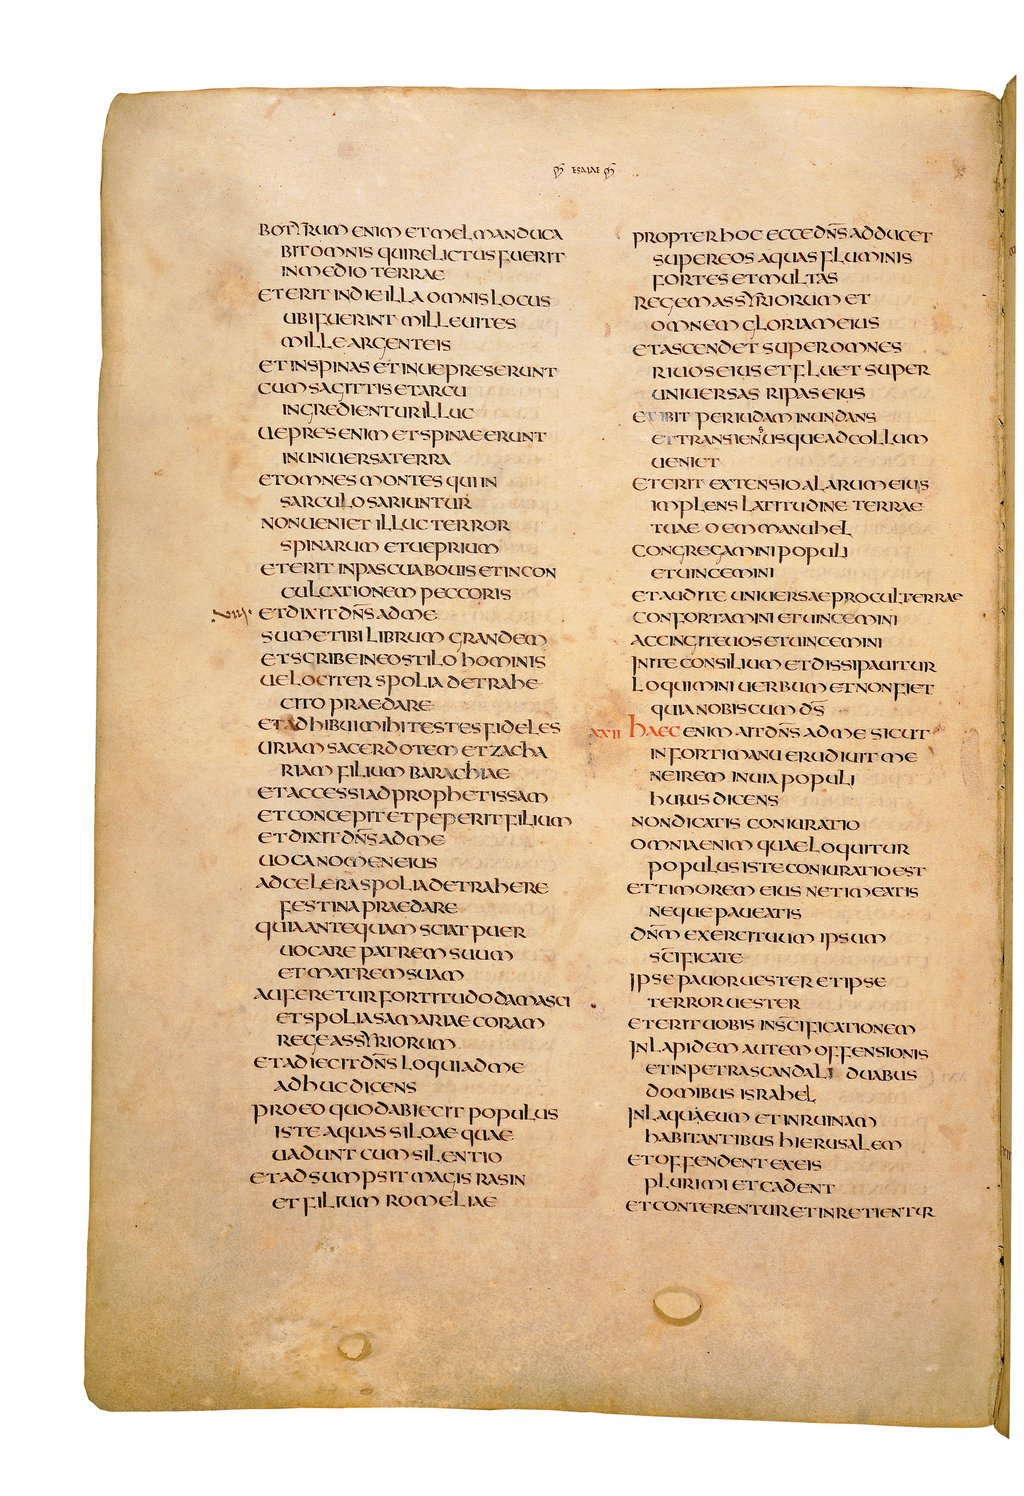 ESAIAE
BOTYRUM ENIM ET MEL MANDUCA
BIT OMNIS QUI RELICTUS FUERIT
IN MEDIO TERRAE
ET ERIT IN DIE ILLA OMNIS LOCUS
UBI FUERINT MILLE UITES
MILLE ARGENTEIS
ET IN SPINAS ET IN UEPRES ERUNT
CUM SAGITTIS ET ARCU
INGREDIENTUR ILLUC
UEPRES ENIM ET SPINAE ERUNT
IN UNIUERSA TERRA
ET OMNES MONTES QUI IN
SARCULO SARIUNTUR
NON UENIET ILLUC TERROR
SPINARUM ET UEPRIUM
ET ERIT IN PASCUA BOUIS ET IN CON
CULCATIONEM PECCORIS
ET DIXIT DN̄S AD ME
SUME TIBI LIBRUM GRANDEM
ET SCRIBE IN EO STILO HOMINIS
UELOCITER SPOLIA DETRAHE
CITO PRAEDARE
ET ADHIBUI MIHI TESTES FIDELES
URIAM SACERDOTEM ET ZACHA
RIAM FILIUM BARACHIAE
ET ACCESSI AD PROPHETISSAM
ET CONCEPIT ET PEPERIT FILIUM
ET DIXIT DN̄S AD ME
UOCA NOMEN EIUS
ADCELERA SPOLIA DETRAHERE
FESTINA PRAEDARE
QUIA ANTEQUAM SCIAT PUER
UOCARE PATREM SUUM
ET MATREM SUAM
AUFERETUR FORTITUDO DAMASCI
ET SPOLIA SAMARIAE CORAM
REGE ASSYRIORUM
ET ADIECIT DN̄S LOQUI AD ME
ADHUC DICENS
PRO EO QUOD ABIECIT POPULUS
ISTE AQUAS SILOAE QUAE
UADUNT CUM SILENTIO
ET ADSUMPSIT MAGIS RASIN
ET FILIUM ROMELIAE
PROPTER HOC ECCE DN̄S ADDUCET
SUPER EOS AQUAS FLUMINIS
FORTES ET MULTAS
REGEM ASSYRIORUM ET
OMNEM GLORIAM EIUS
ET ASCENDET SUPER OMNES
RIUOS EIUS ET FLUET SUPER
UNIUERSAS RIPAS EIUS
ET IBIT PER IUDAM INUNDANS
ET TRANSIENS USQUE AD COLLUM
UENIET
ET ERIT EXTENSIO ALARUM EIUS
IMPLENS LATITUDINE TERRAE
TUAE O EMMANUHEL
CONGREGAMINI POPULI
ET UINCEMINI
ET AUDITE UNIUERSAE PROCUL TERRAE
CONFORTAMINI ET UINCEMINI
ACCINGITE UOS ET UINCEMINI
INITE CONSILIUM ET DISSIPAUITUR
LOQUIMINI UERBUM ET NON FIET
QUIA NOBISCUM DS̄
XXII HAEC ENIM AIT DN̄S AD ME SICUT
IN FORTI MANU ERUDIUIT ME
NE IREM IN UIA POPULI
HUIUS DICENS
NON DICATIS CONIURATIO
OMNIA ENIM QUAE LOQUITUR
POPULUS ISTE CONIURATIO EST
ET TIMOREM EIUS NE TIMEATIS
NEQUE PAUEATIS
DN̄M EXERCITUUM IPSUM
SC̄IFICATE
IPSE PAUOR UESTER ET IPSE
TERROR UESTER
ET ERIT UOBIS IN SC̄IFICATIONEM
IN LAPIDEM AUTEM OFFENSIONIS
ET IN PETRA SCANDALI DUABUS
DOMIBUS ISRAHEL
IN LAQUAEUM ET IN RUINAM
HABITANTIBUS HIERUSALEM
ET OFFENDENT EX EIS
PLURIMI ET CADENT
ET CONTERENTUR ET INRETIENTUR